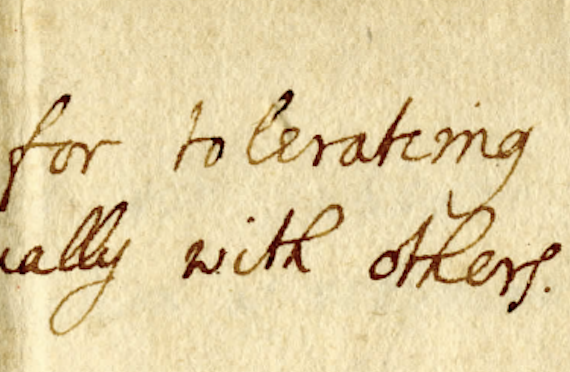 for tolerating
ually with others.